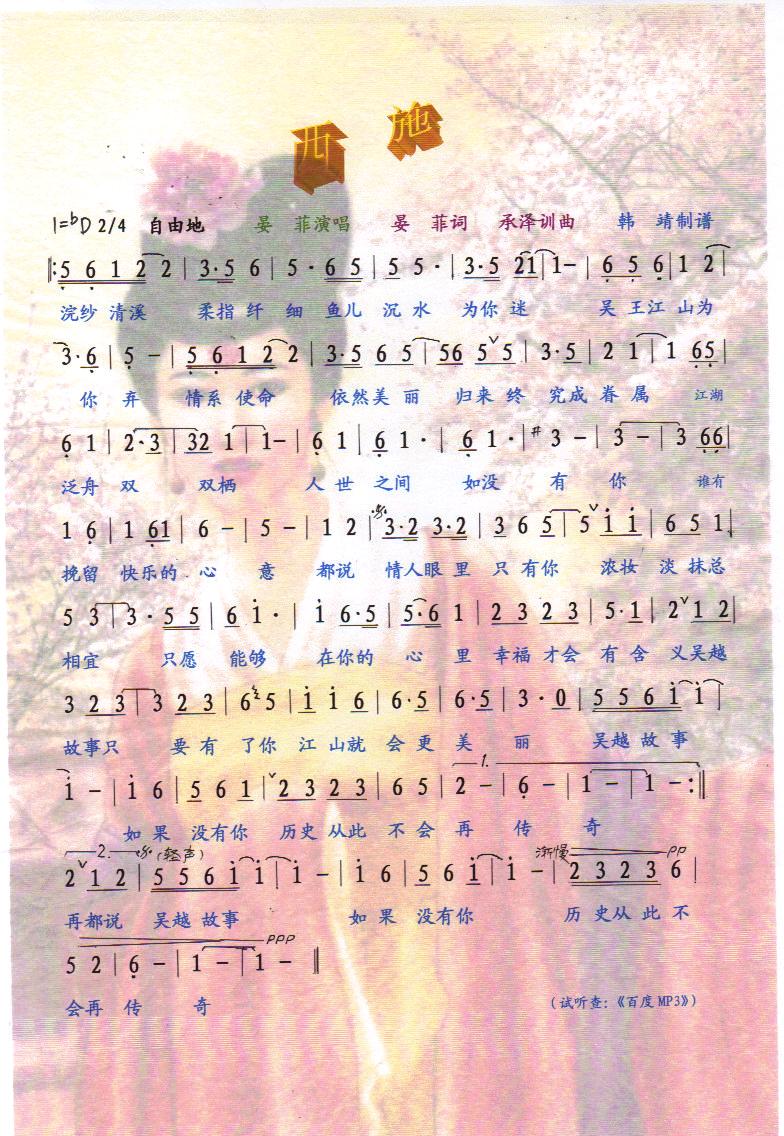 西施
1=♭D 2/4 自由地 晏 菲演唱 晏 菲词 承泽训曲 韩 靖制谱
‖:5 6 1 2 2 | 3·5 6 | 5·6 5 | 5 5· | 3·5 21 | 1- | 6 5 6 | 1 2 |
浣纱 清溪 柔指 纤 细 鱼儿 沉 水 为你 迷 吴 王江 山为
3·6 | 5 - | 5 6 1 2 2 | 3·5 6 5 | 56 5ˇ5 | 3·5 | 2 1 | 1 65 |
你 弃 情系 使命 依然美 丽 归来 终 究成 眷 属 江湖
6 1 | 2·3 | 32 1 | 1- | 6 1 | 6 1· | 6 1· | #3 - | 3 - | 3 66 |
泛舟 双 双栖 人 世 之间 如没 有 你 谁有
1 6 | 1 61 | 6 - | 5 - | 1 2 | 3·2 3·2 | 3 6 5 | 5ˇi i | 6 5 1 |
挽留 快乐的 心 意 都说 情人眼 里 只 有你 浓妆 淡 抹总
5 3 | 3· 5 5 | 6 i· | i 6·5 | 5·6 1 | 2 3 2 3 | 5·1 | 2ˇ1 2 |
相宜 只愿 能够 在你的 心 里 幸福 才会 有 含 义吴越
3 2 3 | 3 2 3 | 6 5 | i i 6 | 6·5 | 6·5 | 3·0 | 5 5 6 i | i |
故事只 要有 了你 江 山就 会 更 美 丽 吴越 故 事
i - | i 6 | 5 6 1 |ˇ2 3 2 3 | 6 5 | 1. 2 - | 6 - | 1 - | 1 - :‖
如 果 没有你 历史 从此 不 会 再 传 奇
2. (轻声) 渐慢 pp
2ˇ1 2 | 5 5 6 i i | i - | i 6 | 5 6 i | i - | 2 3 2 3 6 |
再都说 吴越 故事 如 果 没有你 历 史从 此 不
ppp
5 2 | 6 - | 1 - | 1 - ‖
会再 传 奇
（试听查：《百度 MP3》）